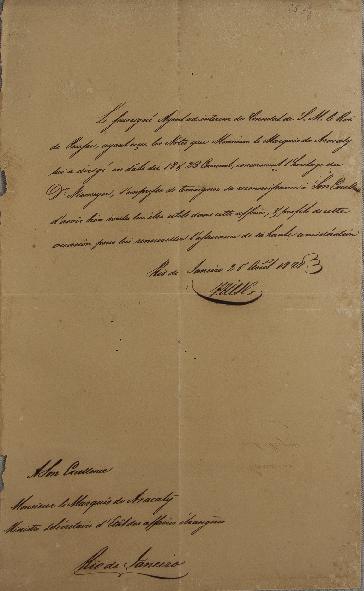 Le soussigné Agent ad interim du Consulat de S. M. le Roi
de Prusse, ayant reçu les Notes que Monsieur le Marquis de Aracaty
lui a dirigé en date des 19 & 23 Courant, concernant l'horloge du
Dr s'empresse de temoigner sa reconnaissance à Son Excellence
d'avoir bien voulu cette affaire, & profite de cette
occasion pour lui renouveller l'assurance de sa haute considération
Rio de Janeiro 25 Août 1828
A Son Excellence
Monsieur le Marquis de Aracaty
Ministre Sécrétaire d'Etat des affaires étrangères
Rio de Janeiro